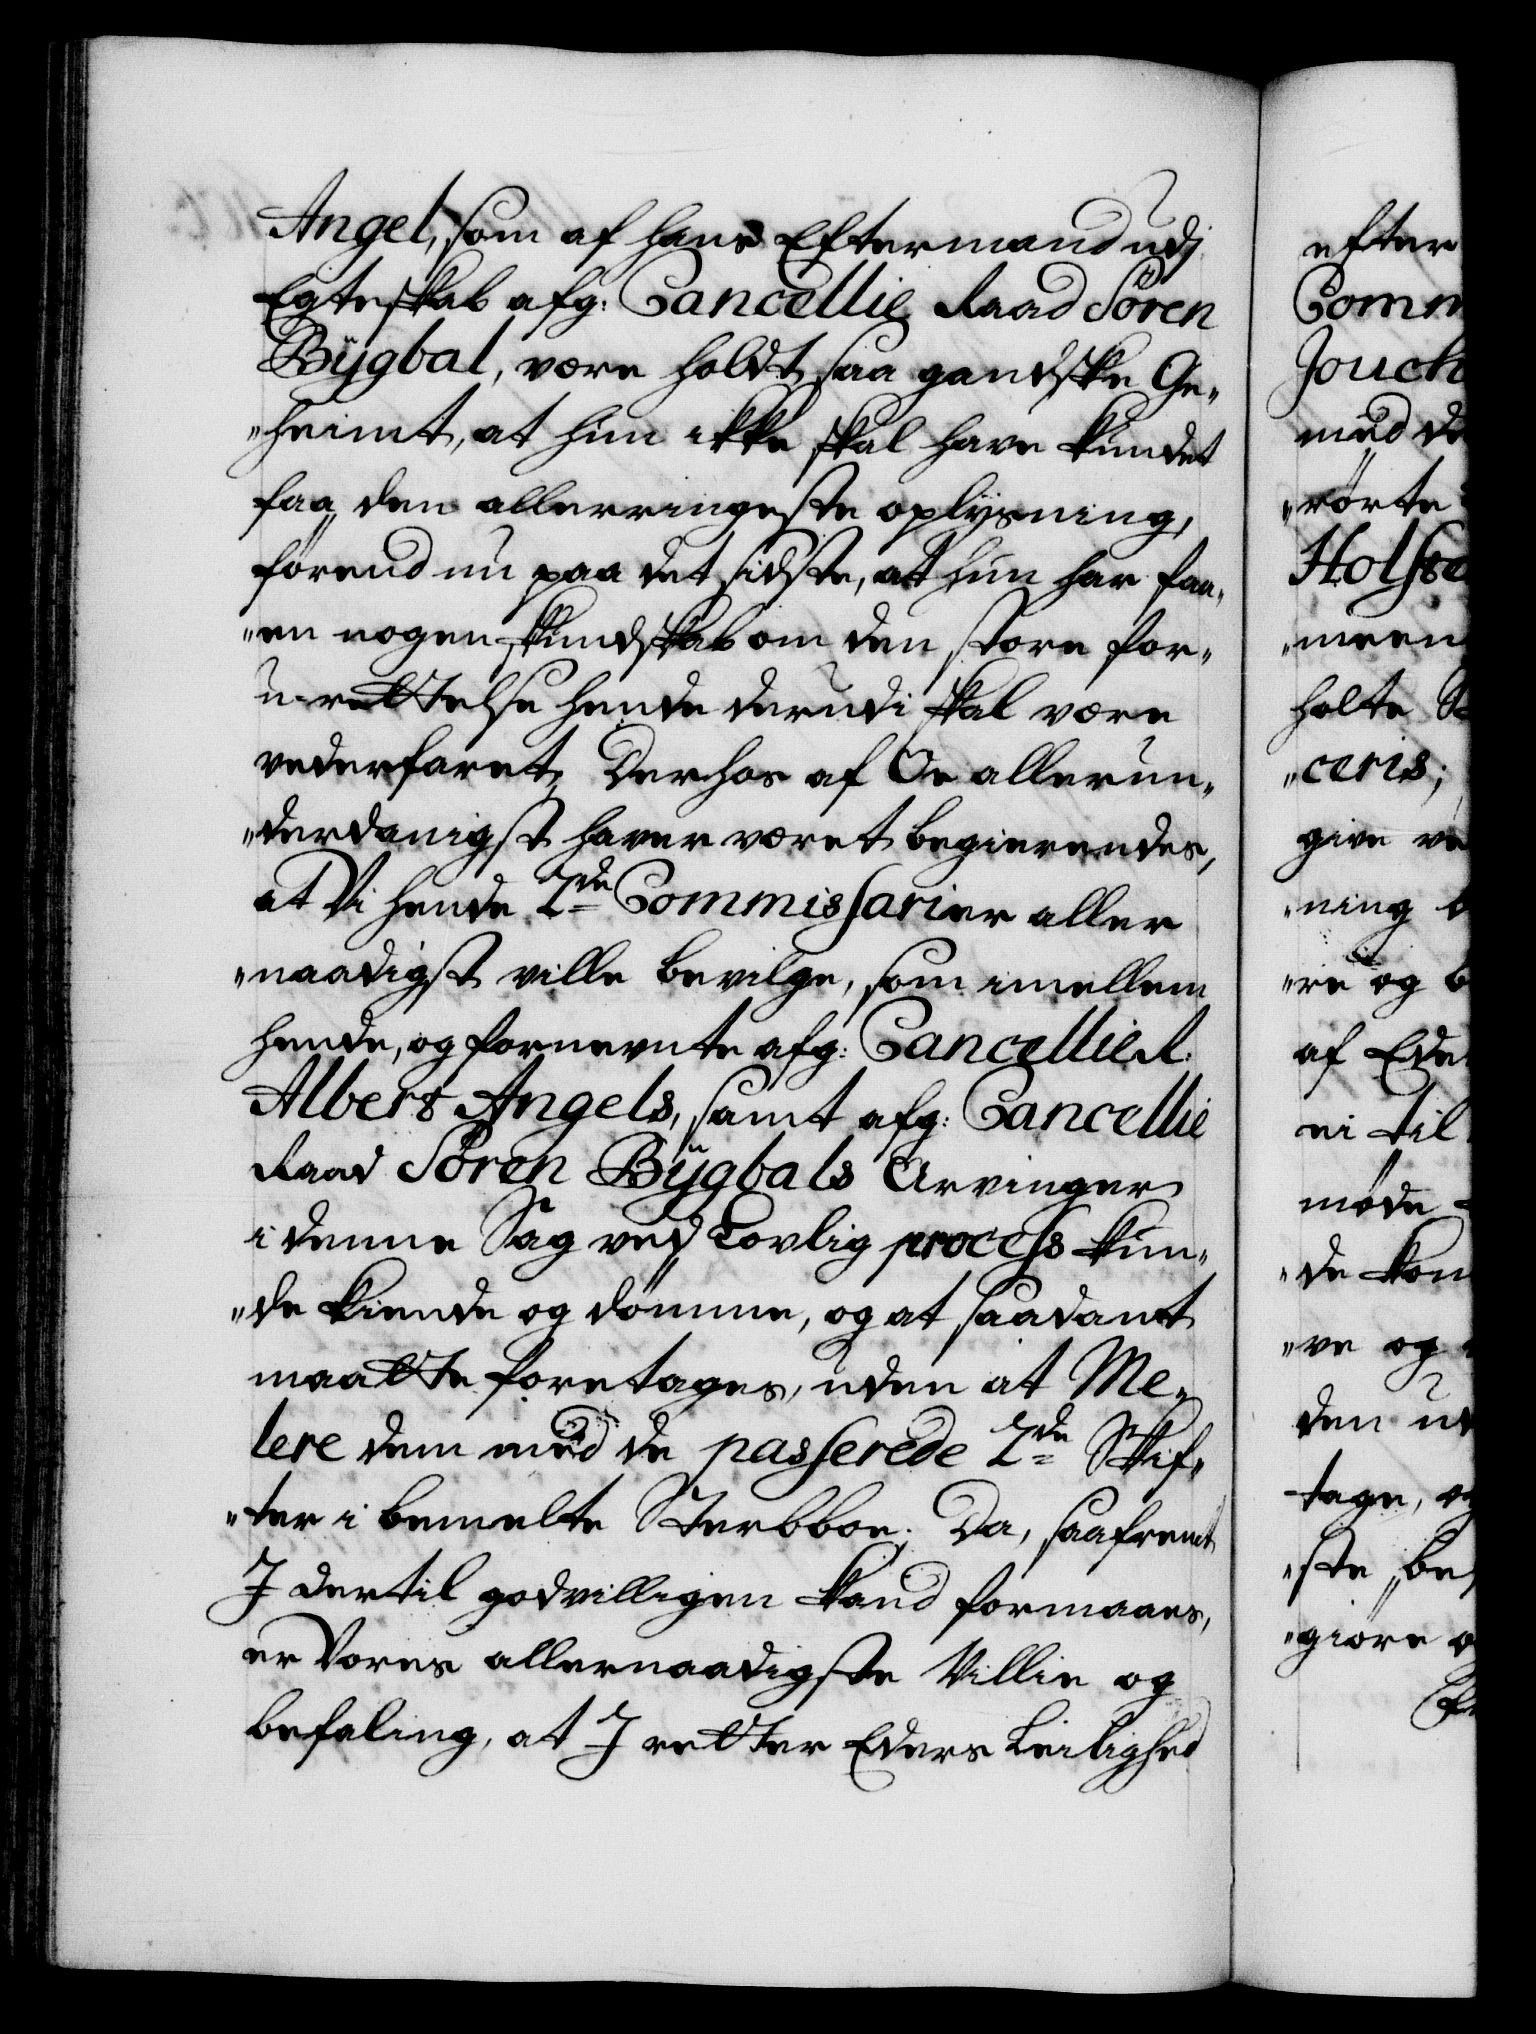 Angel, som af hans Eftermand udj
Egteskab afg: Cancellie Raad Sören
Bÿgbal, være holdt saa gandske Ge„
„heimt, at hun ikke skal have kundet
faa den allerringeste oplysning,
förend nu paa det sidste, at hun har faa„
„en nogen kundskab om den store for„
u-rettelse hende derudi skal være
vederfaret, Derhos af Os allerun„
„derdanigst haver været begierendes,
at Vi hende 2de Commissarier aller
„naadigst ville bevilge, som imellem
hende, og fornevnte afg: Cancellie R:
Albert Angels, samt afg: Cancellie
Raad Sören Bÿgbals Arvinger
i denne Sag ved Lovlig process kun„
„de kiende og dömme, og at saadant
maatte foretages, uden at Me„
lere dem med de passerede 2de Skif„
„ter i bemelte Sterbboe; Da, saafremt
I dertil godvilligen kand formaaes,
er Vores allernaadigste Villie og
befaling, at I retter Eders Leilighed
efter
Comm
Jouch
med de
„rörte
Holste
„meen
holte
„ceris;
give ve
„ning
„re og b
af Ede
ei til
möde
„de kom
„ve og
den ud
tage, og
„ste be
„giöre